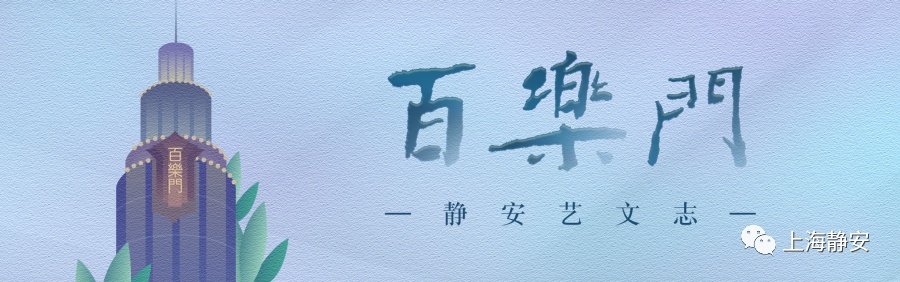 百樂門
百樂門
— 静安艺文志 —
上海静安